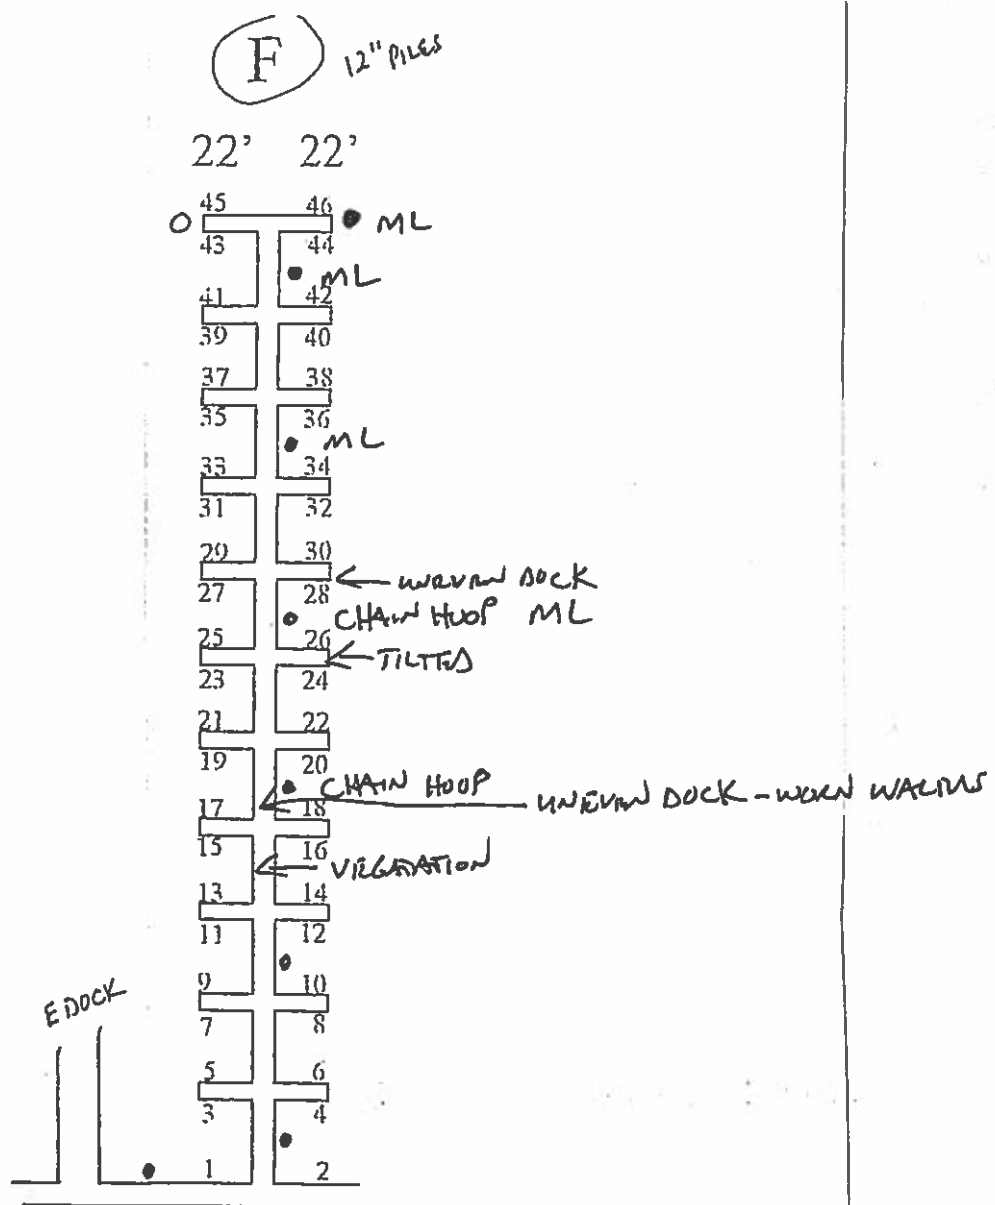 F 12" PILES
22' 22'
45 46
ML
43 44
ML
41 42
39 40
37 38
35 36
ML
33 34
31 32
29 30
UNEVEN DOCK
27 28
CHAIN HOOP ML
25 26
TILTED
23 24
21 22
19 20
CHAIN HOOP
UNEVEN DOCK - WORN WALERS
17 18
15 16
VEGETATION
13 14
11 12
9 10
E DOCK
7 8
5 6
3 4
1 2